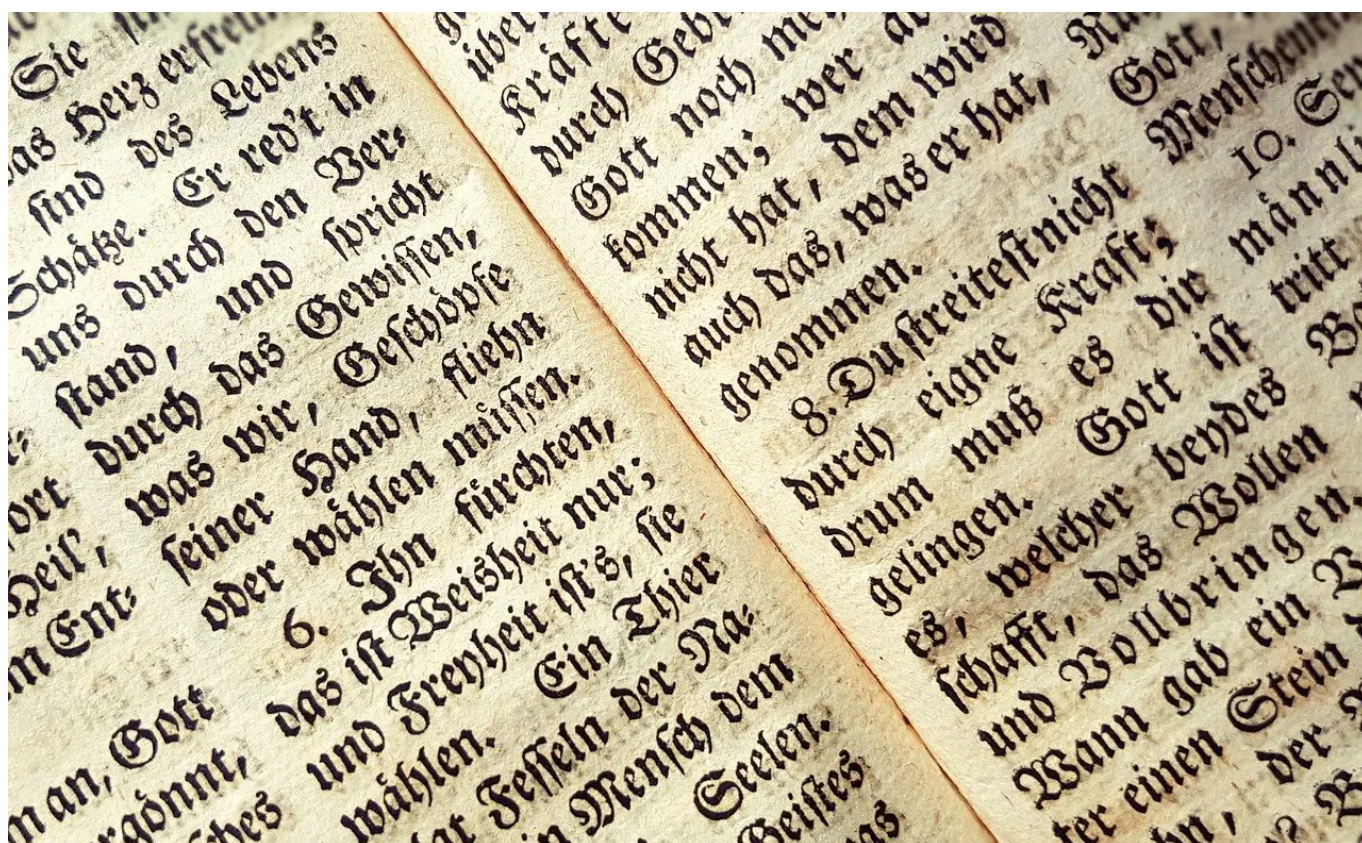 Heil',
Ent⸗
an, Gott
Sie
das Herz
ſind des Lebens
Schätze. Er red't in
uns durch den Ver⸗
ſtand, und ſpricht
durch das Gewiſſen,
was wir, Geſchöpfe
ſeiner Hand, fliehn
oder wählen müſſen.
6. Ihn fürchten,
das iſt Weisheit nur;
und Freyheit iſt's, ſie
wählen. Ein Thier
Feſſeln der Na⸗
Menſch dem
Seelen.
Geiſtes
Kräfte
durch
Gott noch
kommen; wer
nicht hat, dem wird
auch das, was er hat,
genommen.
8. Du ſtreiteſt nicht
durch eigne Kraft;
drum muß es dir
gelingen. Gott iſt
es, welcher beydes
ſchafft, das Wollen
und Vollbringen.
Wann gab ein
einen Stein
der
Gott,
10.